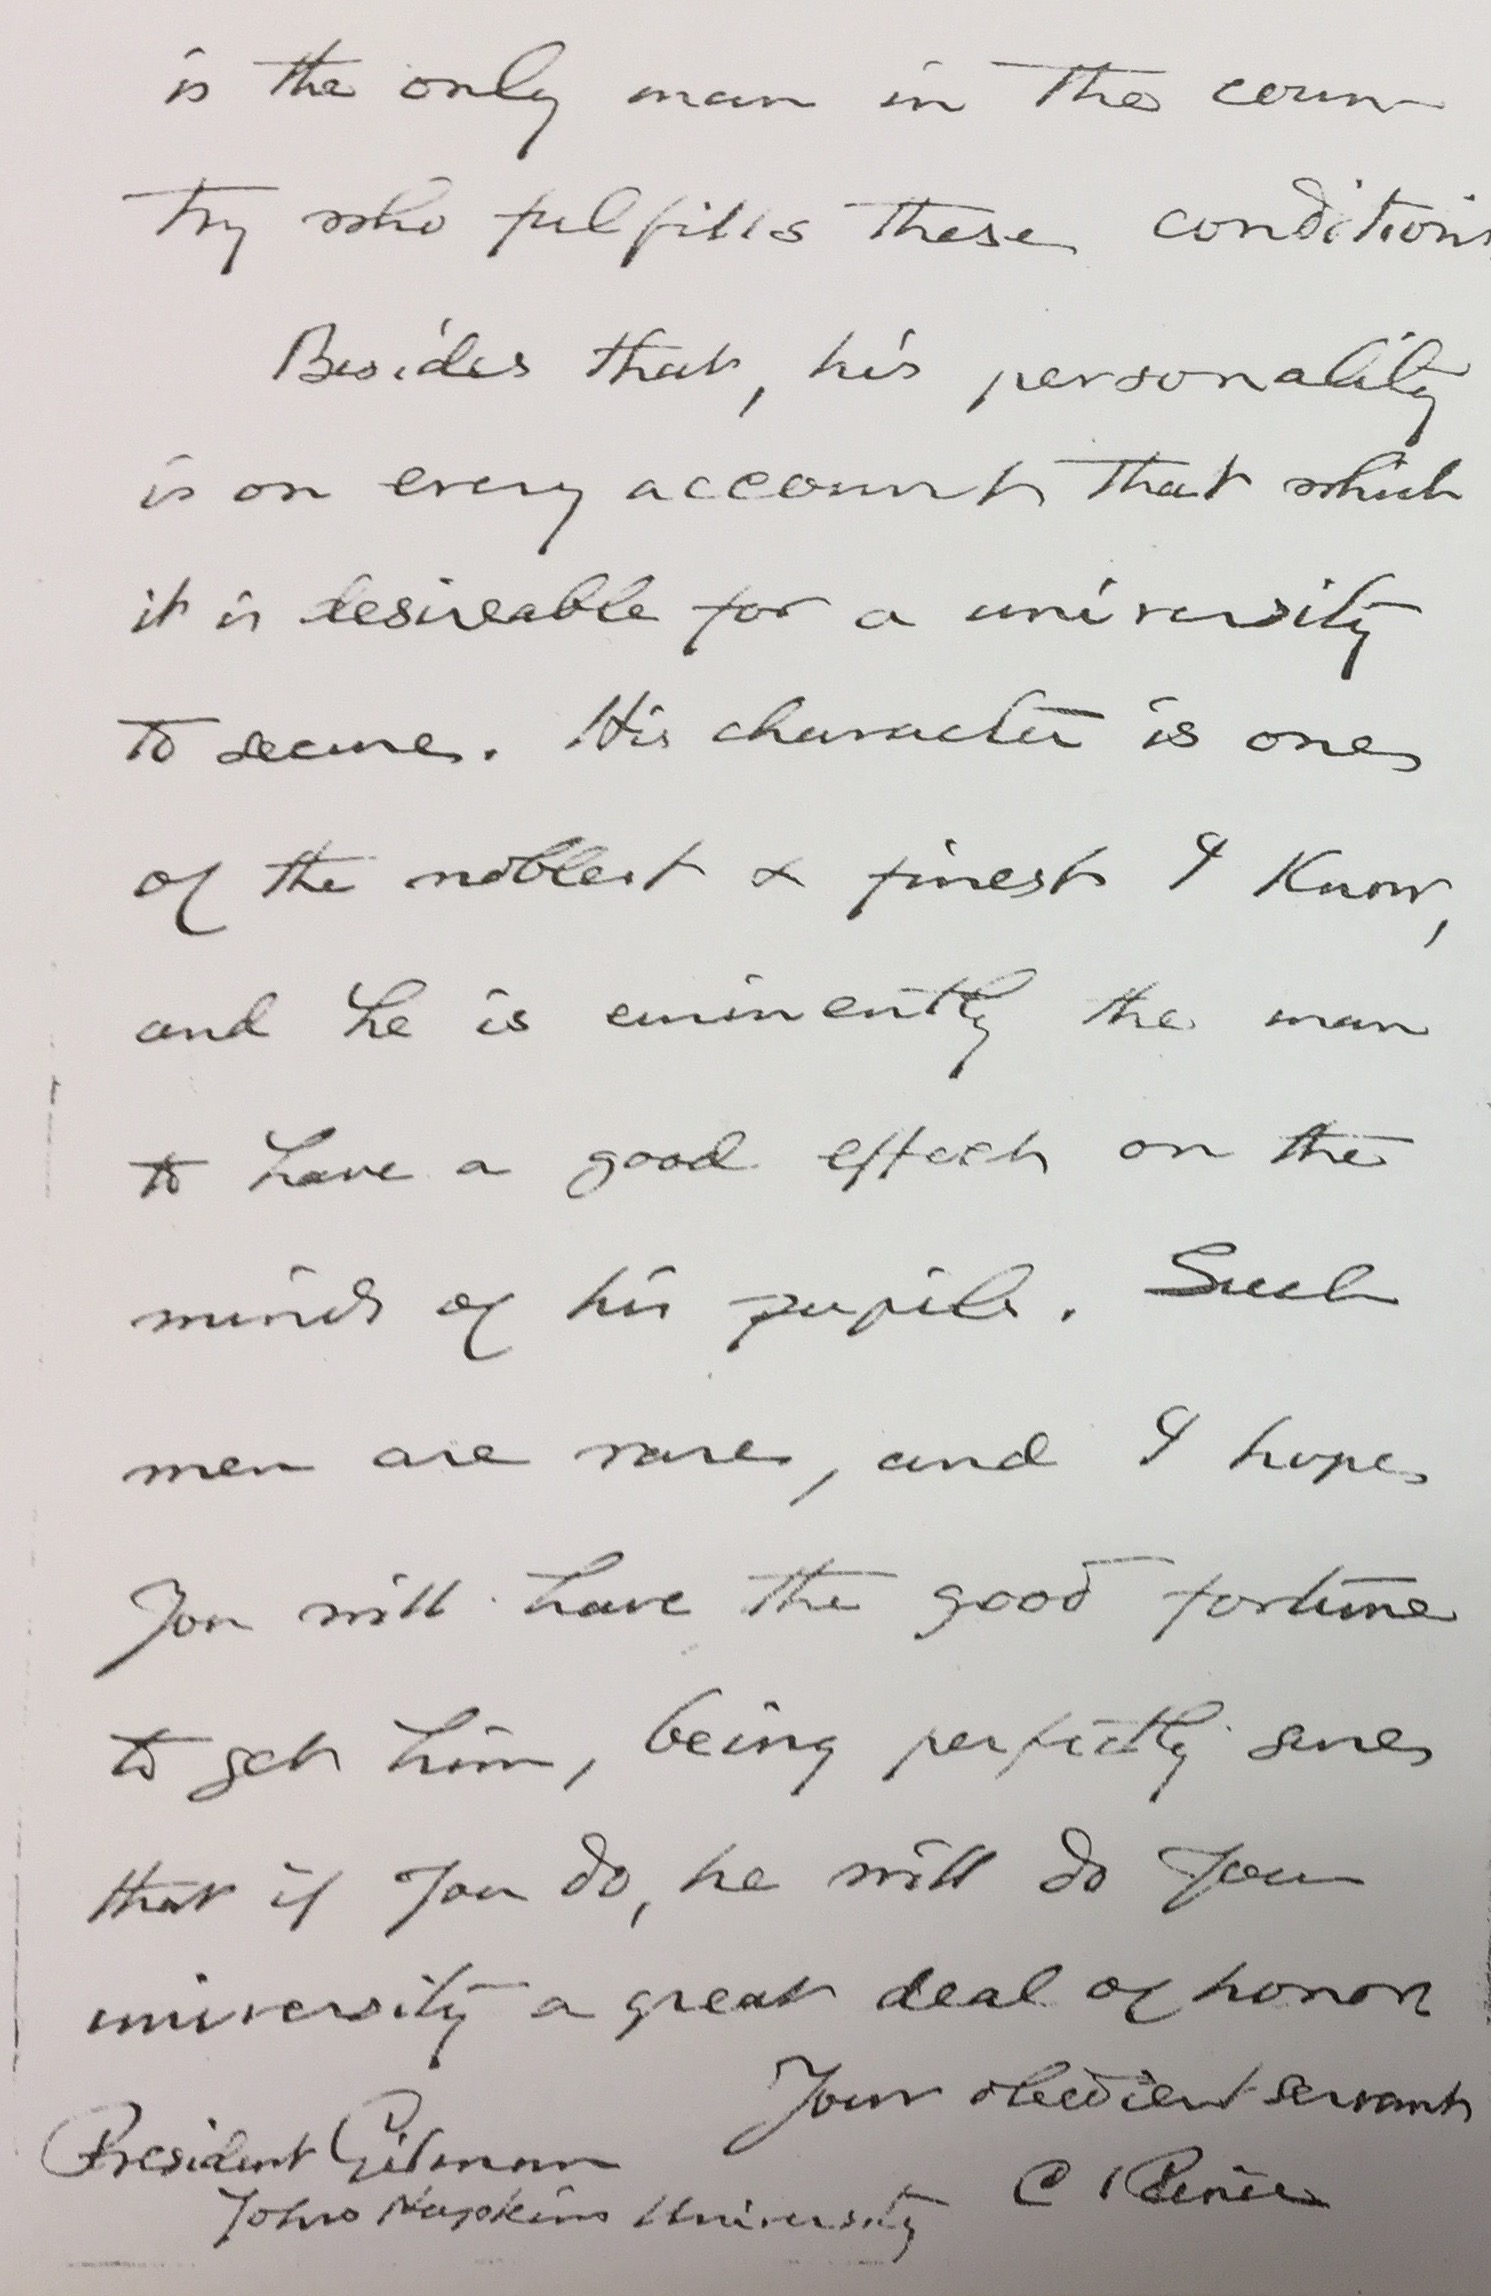 is the only man in the coun
try who fulfills these conditions
Besides that, his personality
is on every account that which
it is desireable for a university
to secure. His character is one
of the noblest & finest I know,
and he is eminently the man
to have a good effect on the
minds of his pupils. Such
men are rare, and I hope
you will have the good fortune
to get him, being perfectly sure
that if you do, he will do your
university a great deal of honor
Your obedient servant
President Gilman
C S Peirce
Johns Hopkins University